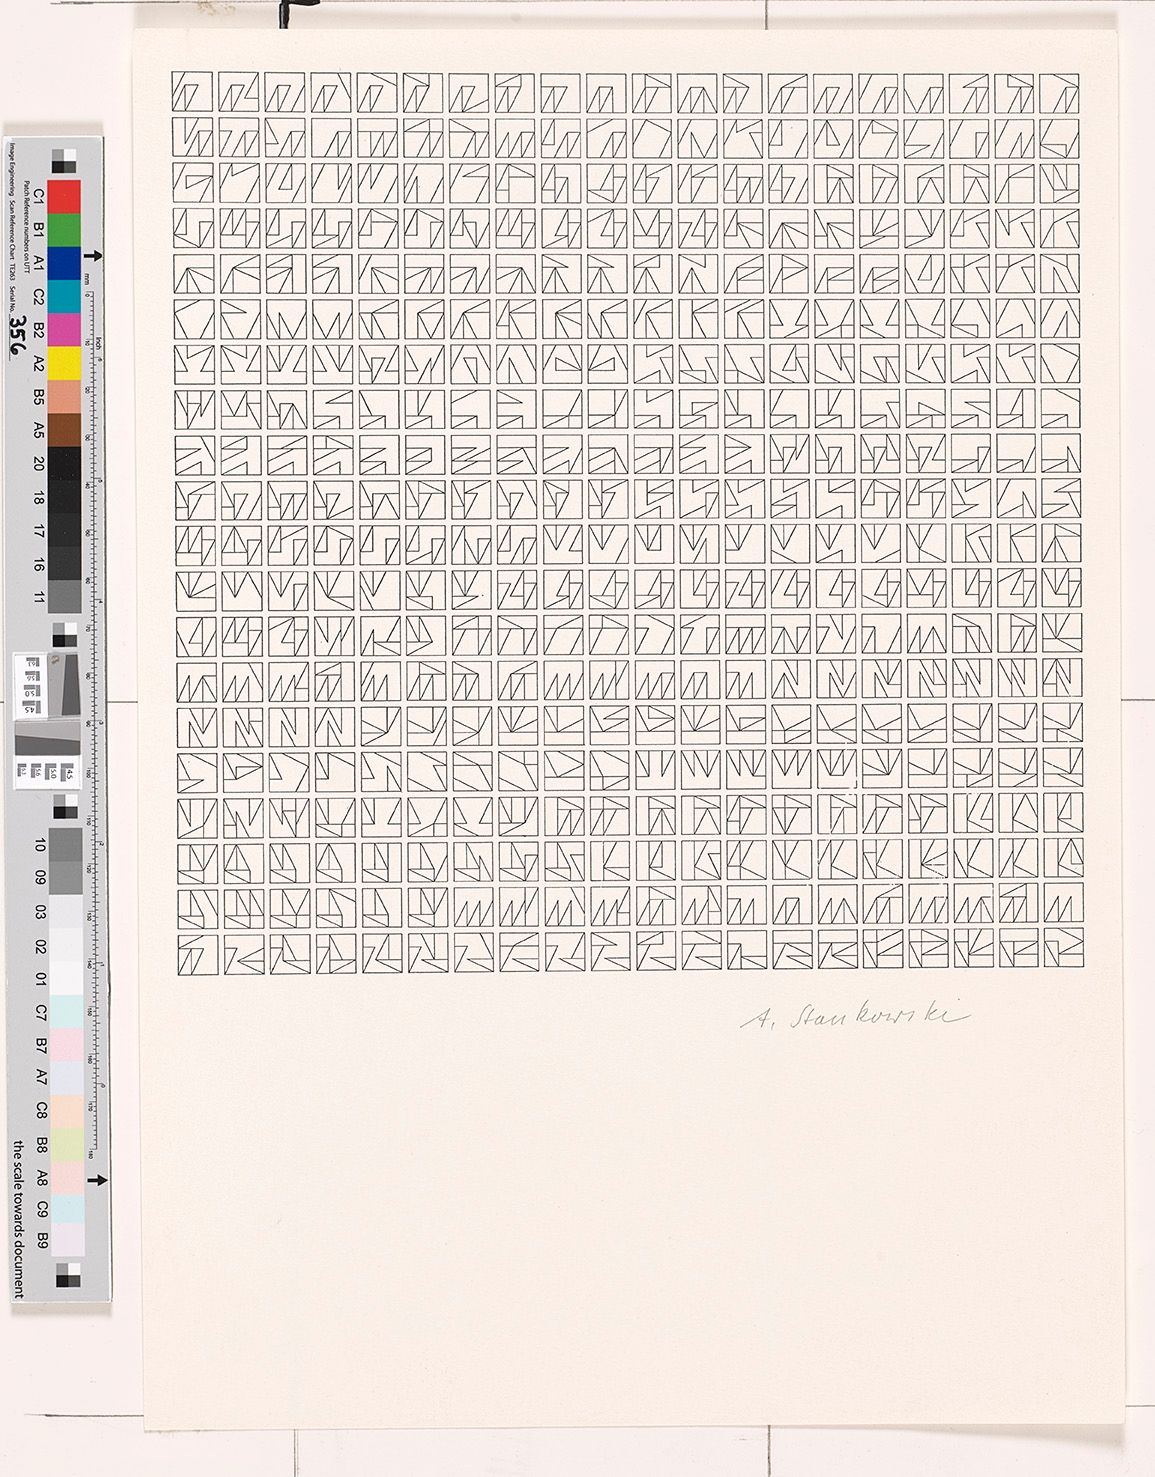 Image Engineering Scan Reference Chart TE263 Serial No.
356
Patch Reference numbers on UTT
C1
B1
A1
C2
B2
A2
B5
A5
20
18
17
16
11
10
09
03
02
01
C7
B7
A7
C8
B8
A8
C9
B9
mm
inch
the scale towards document
A. Stankowski